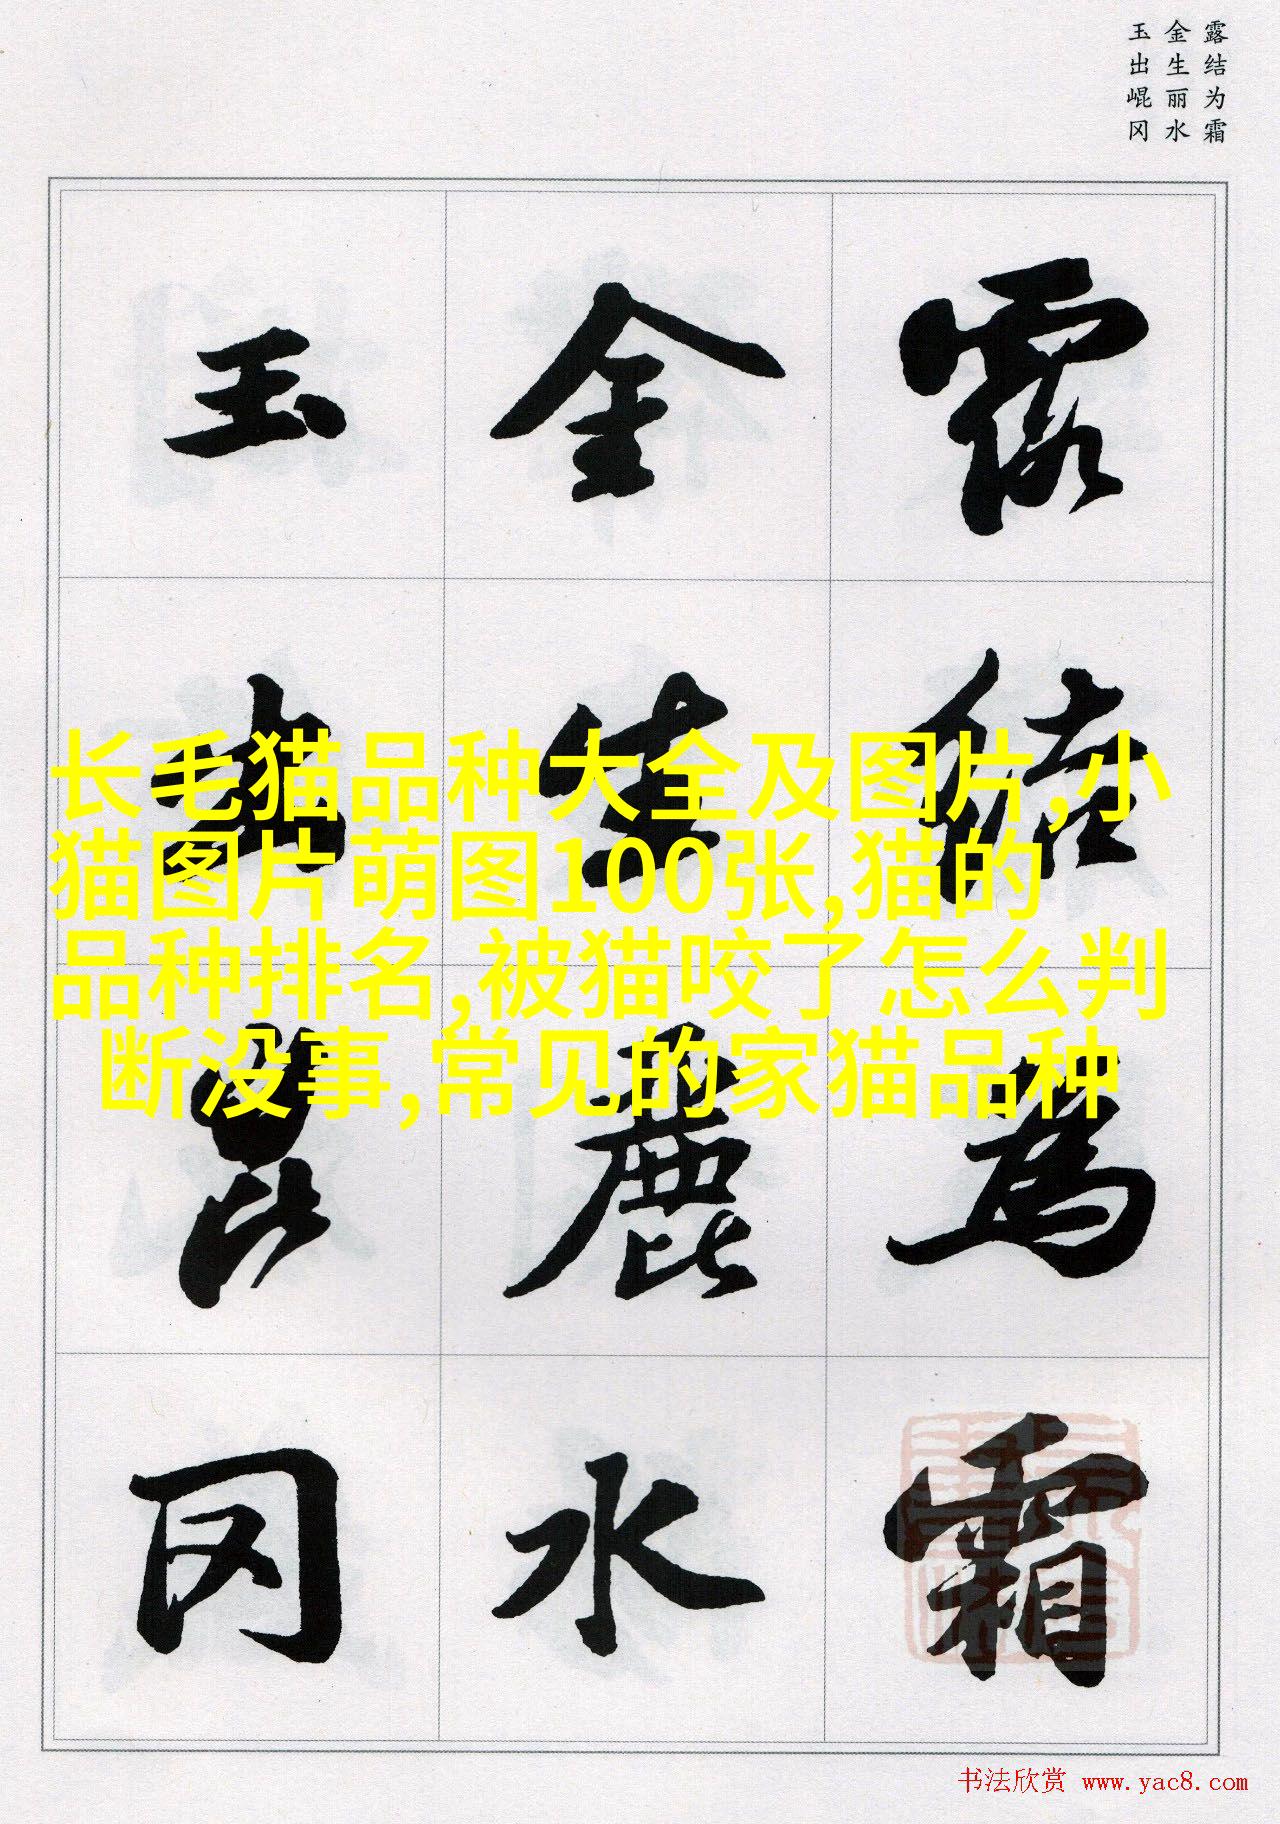 露结为霜
金生丽水
玉出崐冈
露結為霜
金生麗水
玉出崑冈
长毛猫品种大全及图片,小
猫图片萌图100张,猫的
品种排名,被猫咬了怎么判
断没事,常见的家猫品种
书法欣赏 www.yac8.com